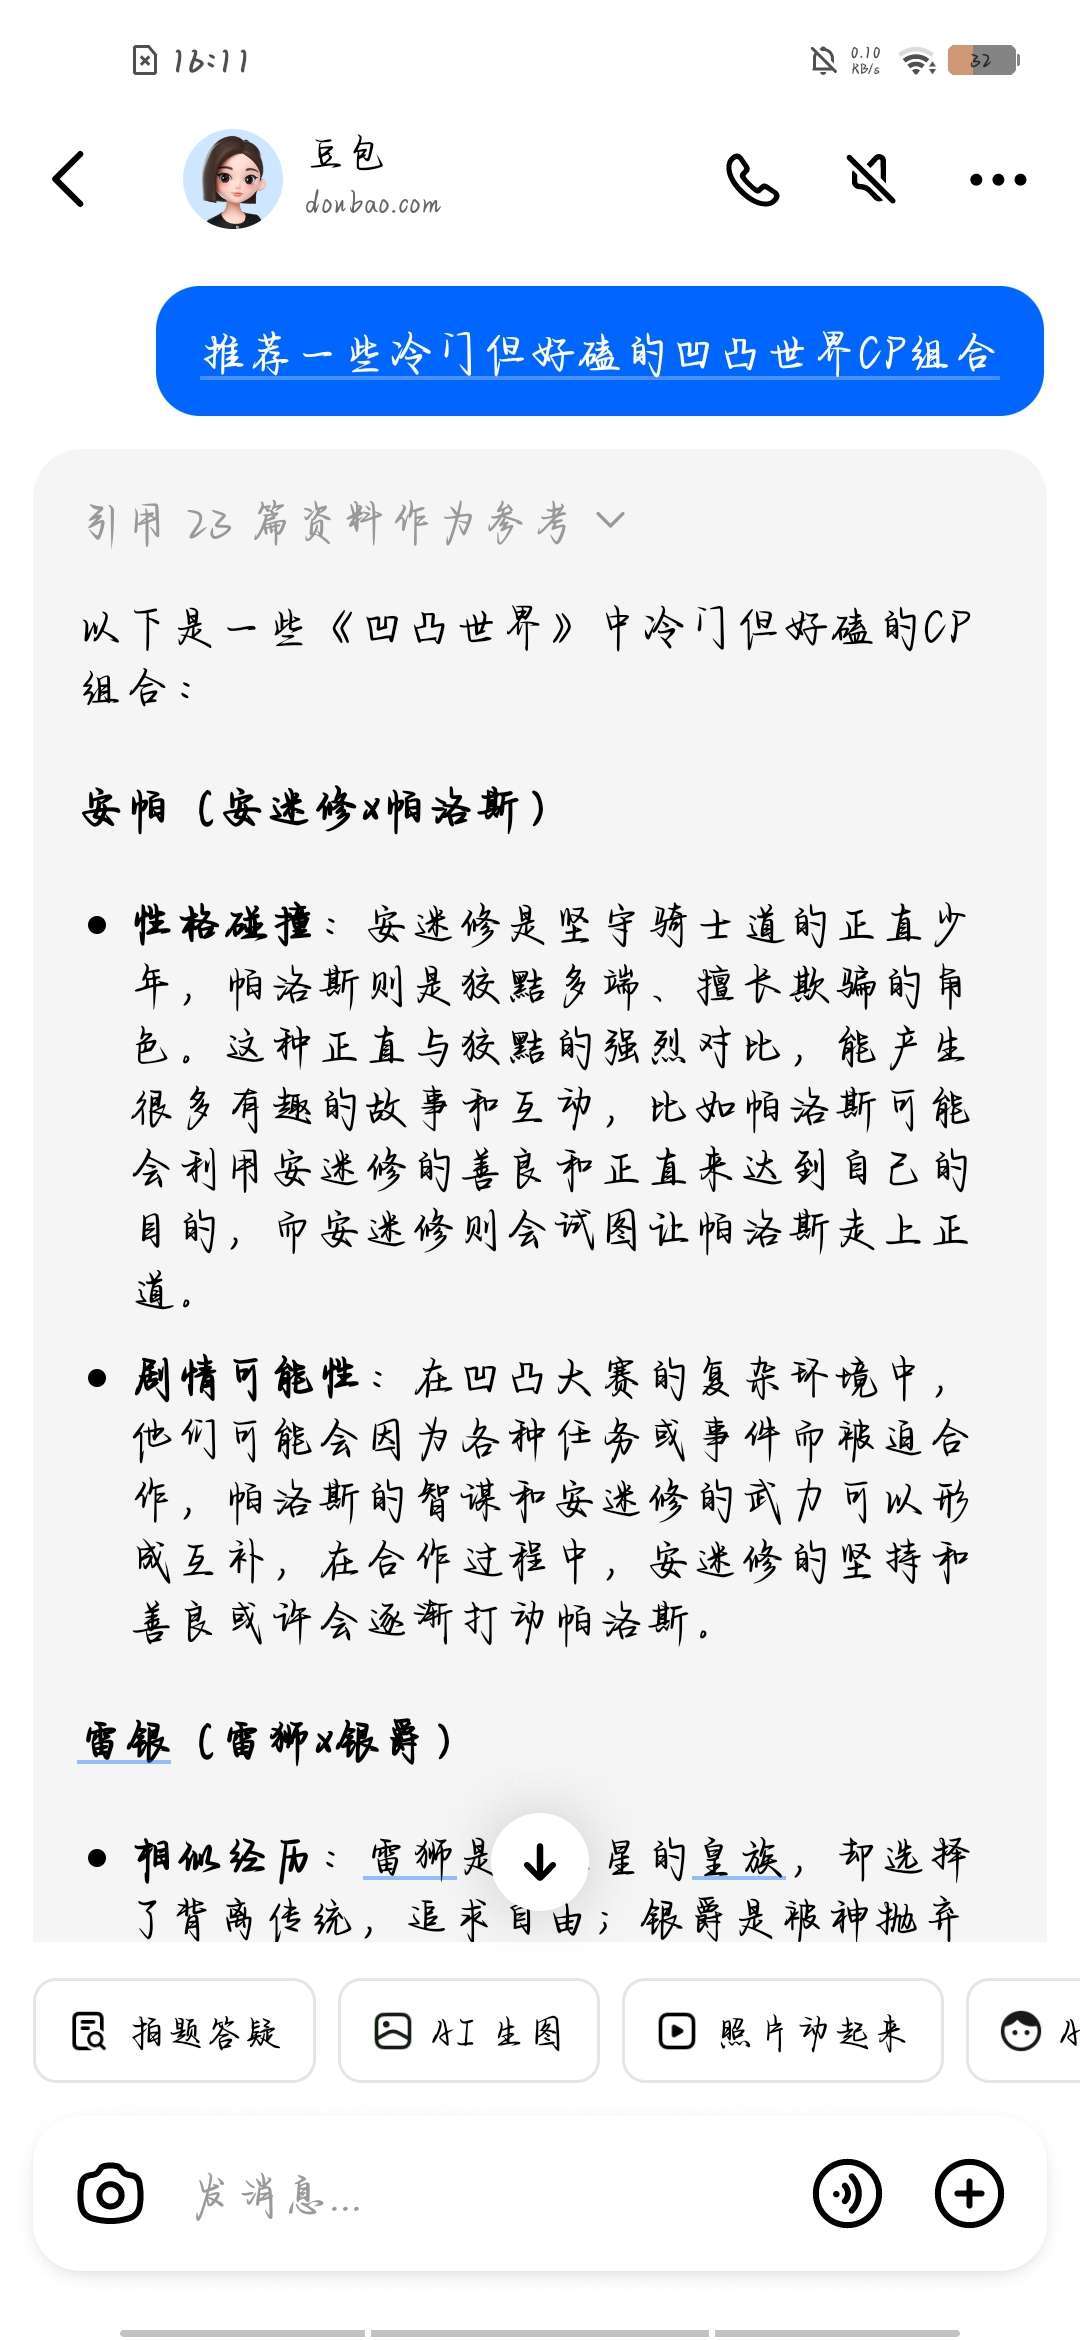 16:11
0.10
KB/s
32
豆包
doubao.com
推荐一些冷门但好磕的凹凸世界CP组合
引用 23 篇资料作为参考
以下是一些《凹凸世界》中冷门但好磕的CP
组合：
安帕（安迷修x帕洛斯）
性格碰撞：安迷修是坚守骑士道的正直少
年，帕洛斯则是狡黠多端、擅长欺骗的角
色。这种正直与狡黠的强烈对比，能产生
很多有趣的故事和互动，比如帕洛斯可能
会利用安迷修的善良和正直来达到自己的
目的，而安迷修则会试图让帕洛斯走上正
道。
剧情可能性：在凹凸大赛的复杂环境中，
他们可能会因为各种任务或事件而被迫合
作，帕洛斯的智谋和安迷修的武力可以形
成互补，在合作过程中，安迷修的坚持和
善良或许会逐渐打动帕洛斯。
雷银（雷狮x银爵）
相似经历：雷狮是 星的皇族，却选择
了背离传统，追求自由；银爵是被神抛弃
拍题答疑
AI 生图
照片动起来
发消息...